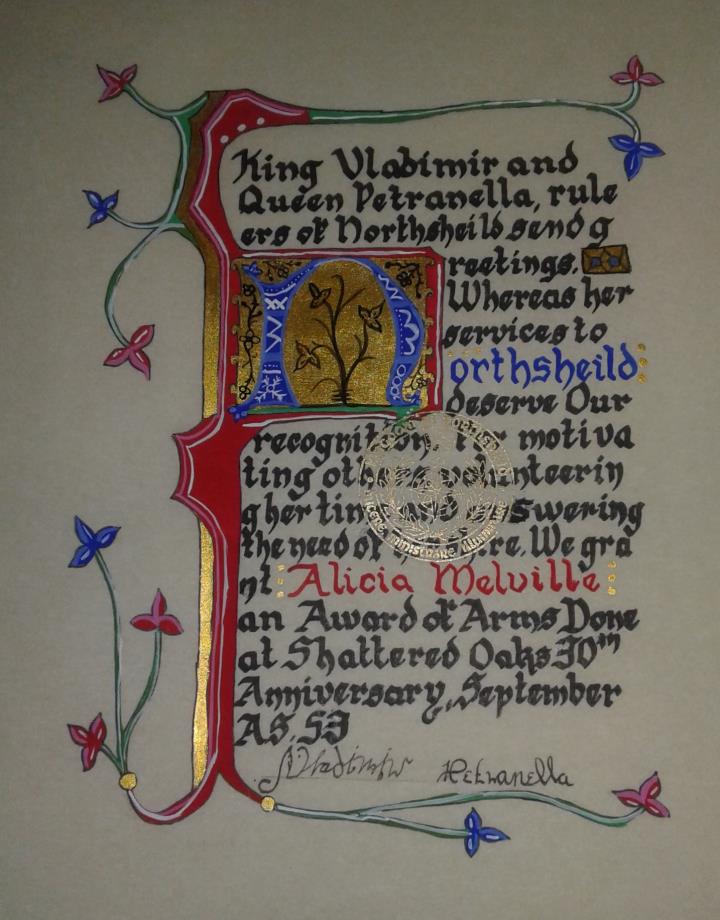 King Vladimir and
Queen Petranella, rule
ers of Northsheild send g
reetings.
Whereas her
services to
Northsheild
deserve Our
recognition. For motiva
ting others volunteerin
g her time and answering
the need of her Shire. We gra
nt Alicia Melville
an Award of Arms Done
at Shattered Oaks 30th
Anniversary, September
AS. 53
Vladimir Petranella